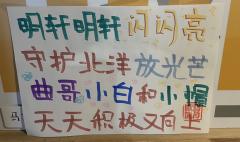 明轩明轩闪闪亮
守护北洋放光芒
曲哥小白和小帽
天天积极又向上
马